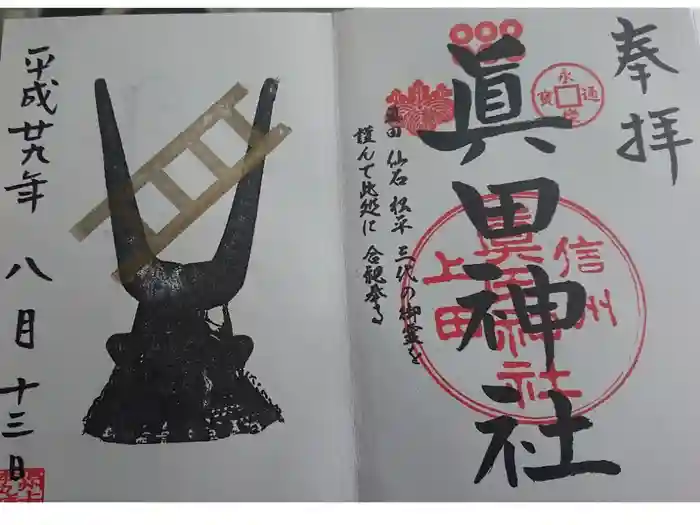 奉拝
眞田神社
信州
眞田神社
上田
永通
寳
眞田 仙石 松平 三代の御霊を
謹んで此処に 合祀奉る
平成廿九年 八月 十三日